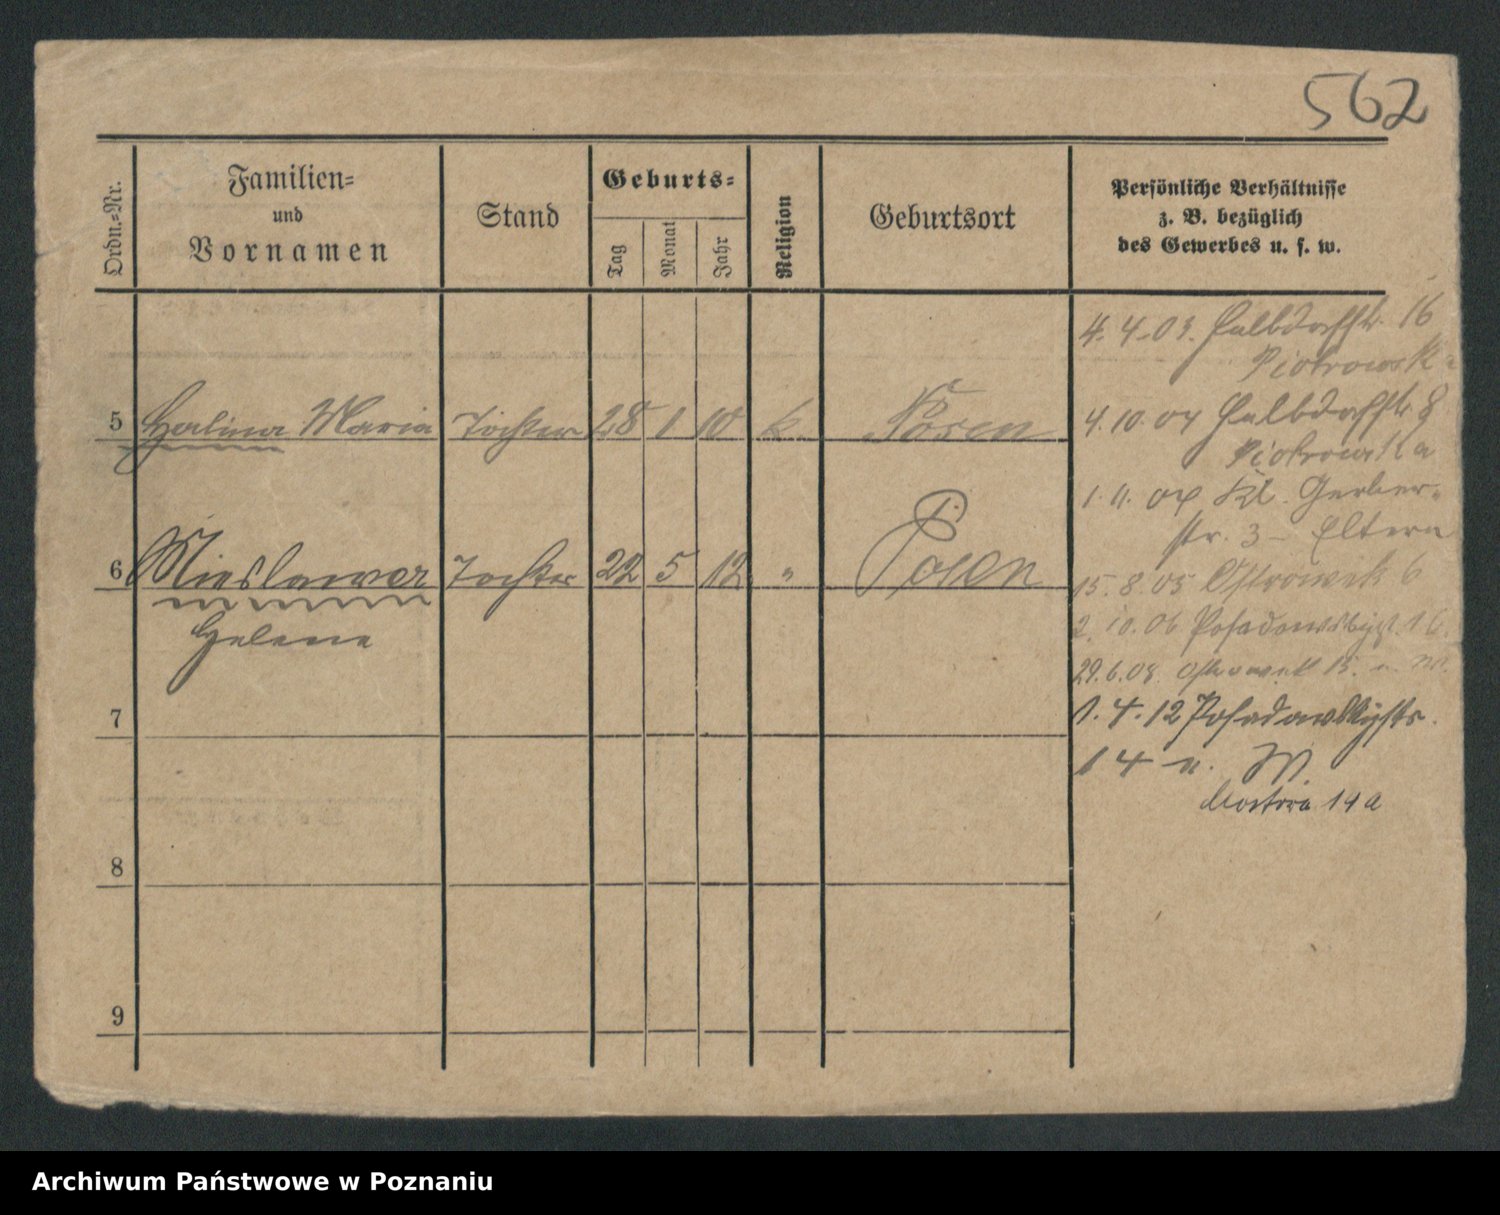 562
Ordn.=Nr.
Familien=
und
Vornamen
Stand
Geburts=
Tag
Monat
Jahr
Religion
Geburtsort
Persönliche Verhältnisse
z. B. bezüglich
des Gewerbes u. s. w.
5 Halina Maria Tochter 28 1 10 k. Posen
6 Mieslawa Tochter 22 5 12 " Posen
Helene
7
8
9
4. 4. 03. Halbdorfstr. 16
Piotrowski
4. 10. 04 Halbdorfstr 8
Piotrowska
1. 11. 04 Kl. Gerber-
str. 3 - Eltern
15. 8. 05 Ostrowek 6
2. 10. 06 Posadowskystr. 16
29. 6. 08. Ostrowek 15. u. W.
1. 4. 12 Posadowskystr.
14 u. W.
19 a
Archiwum Państwowe w Poznaniu